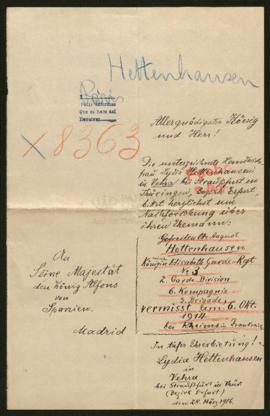 Hettenhausen
Paris
X 8363
Allergnädigster König
und Herr!
Die unterzeichnete
Lydia Hettenhausen
in Vehra bei Straußfurt in
Thüringen, Bezirk Erfurt
bittet herzlichst um
Nachforschung über
ihren Ehemann:
Gefreiter August
Hettenhausen
Königin Elisabeth Garde-Rgt
No 3
2. Garde-Division
6. Kompagnie
5. Brigade
vermisst am 6. Okt.
1914
bei Rheims in Frankreich
An
Seine Majestät
den König Alfons
von
Spanien.
Madrid
In tiefer Ehrerbietung!
Lydia Hettenhausen
in
Vehra
bei Straußfurt in Thür
(Bezirk Erfurt)
den 24. März 1916.